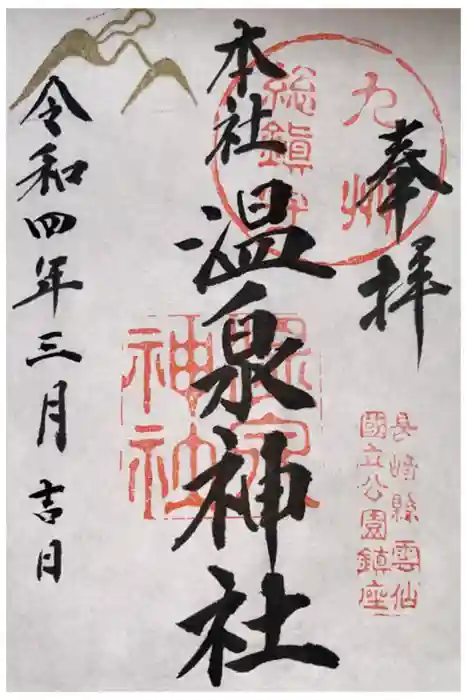 奉拝
九州
総鎮守
本社
温泉神社
温泉
神社
長崎縣雲仙
國立公園鎮座
令和四年三月吉日